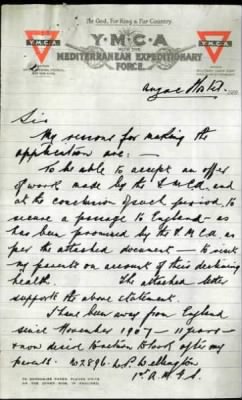 For God, For King & For Country.
Y.M.C.A.
WITH THE
MEDITERRANEAN EXPEDITIONARY
FORCE.
Y.M.C.A.
Y.M.C.A.
Sir
My reasons for making this
application are:
To be able to accept an offer
of work made by the Y.M.C.A. and
at the conclusion of such period, to
secure a passage to England – as
has been promised by the Y.M.C.A. as
per the attached document – to visit
my parents on account of their declining
health. The attached letter
supports the above statement.
I have been away from England
since November 1907 – 11 years –
& now desire to look after my
parents. W. P. Wellington
1st A.M.T.S.
TO ECONOMISE PAPER, PLEASE WRITE
ON THE OTHER SIDE, IF REQUIRED.